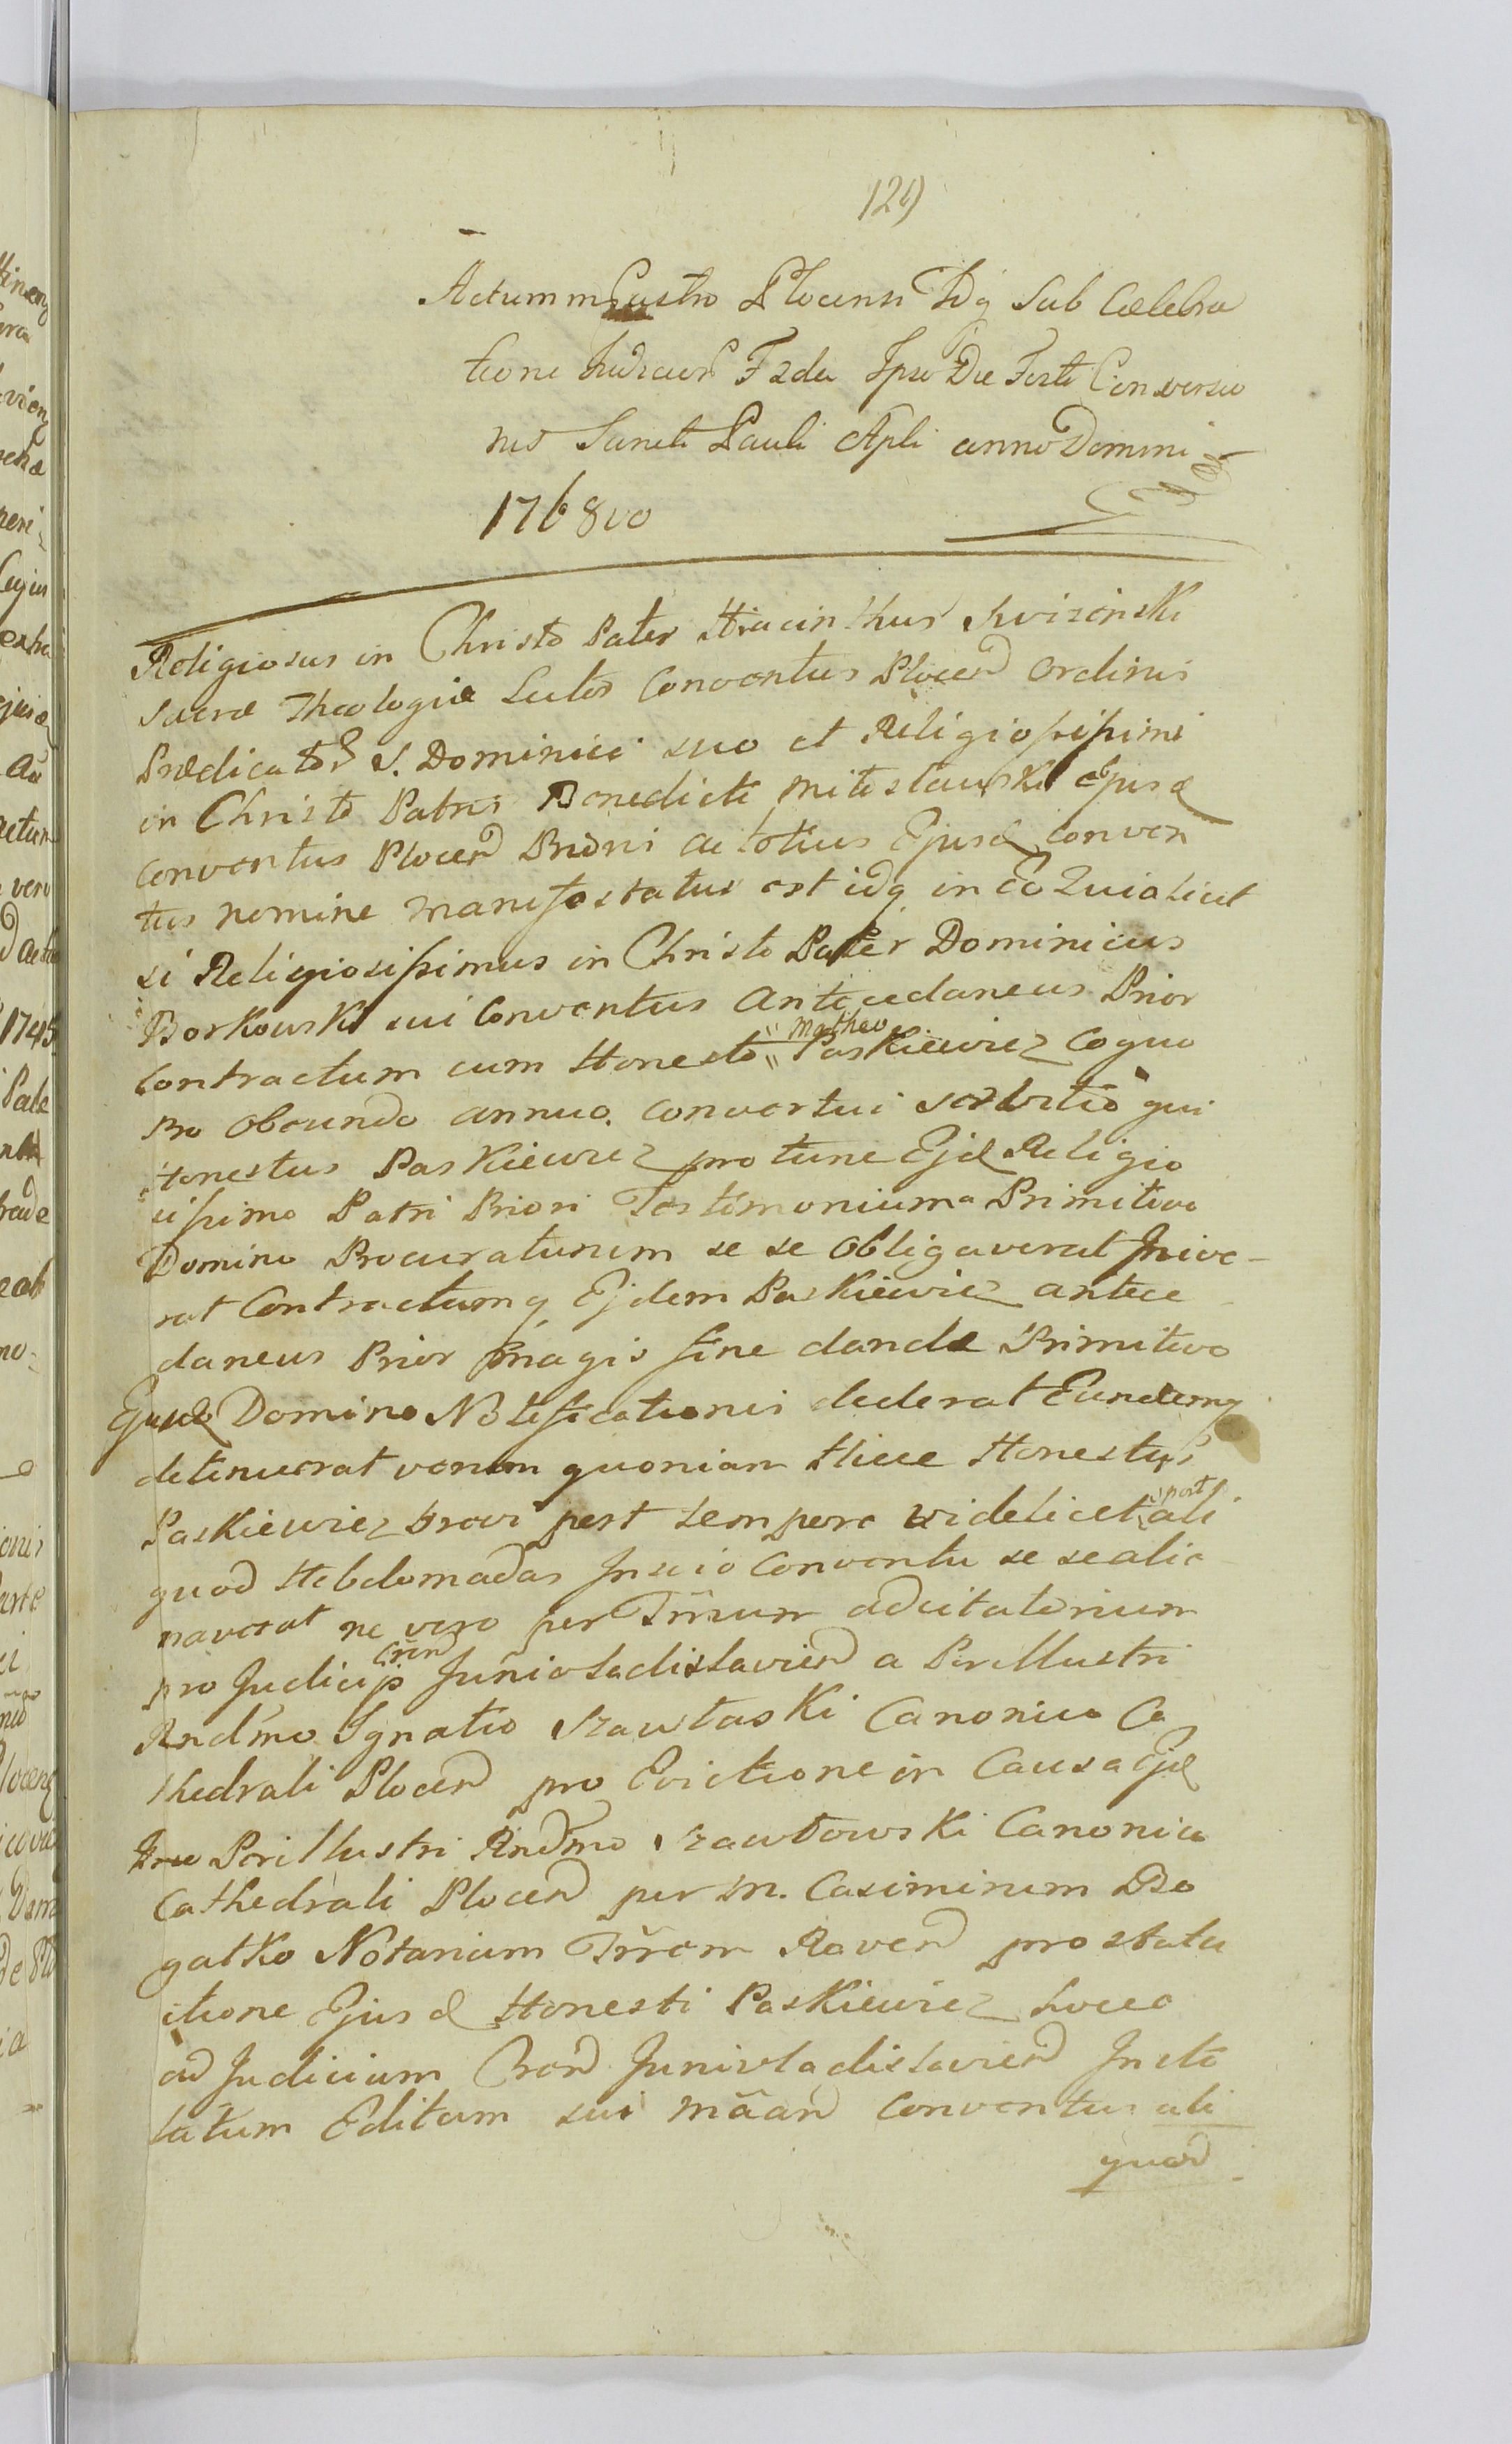 129)
Actum in Castro Plocensi Idq Sub Celebra
tione Judiciorum Feria 2da Ipso Die Festi Conversio
nis Sancti Pauli Apli anno Domini
1768vo
Religiosus in Christo Pater Hiacinthus
Sacræ Theologiæ Lector Conventus Plocen Ordinis
Prædicator S. Dominici suo et Religiosissimi
in Christo Patris Benedicti Mitosławski Ejusd
Conventus Plocen Prioris ac totius Ejusd Conven
tus nomine manifestatus est idq in eo Quia licet
si Religiosissimus in Christo Pater Dominicus
Borkowski sui Conventus Antecedaneus Prior
Contractum cum Honesto Matheo Paskiewicz Coquo
pro obeundo annuo Conventui servitio qui
Honestus Paskiewicz pro tunc Ejd Religio
sissimo Patri Priori Testimonium a Primitivo
Domino Procuraturum se se obligaverat Inive-
rat Contractumq Ejdem Paskiewicz antece
daneus Prior magis fine dandæ Primitivo
Ejusd Domino Notificationis dederat Eundemq
detinuerat verum quoniam Hicce Honestus
Paskiewicz brevi post tempore videlicet post ali
quod Hebdomadas Inscio Conventu se se alie
naverat ne vero per Trnum adcitatorium
pro Judiciis Cren Junivladislavien a Perillustri
Rndmo Ignatio Szawłoski Canonico Ca
thedrali Plocen pro Evictione in Causa Ejd
Perillustri Rndmo Szawłowski Canonico
Cathedrali Plocen per M. Casimirum Bo
gatko Notarium Trrem Raven pro statu
itione Ejusd Honesti Paskiewicz
ad Judicium Cren Junivladislavien
tatum Editum sui Conventus ali
quod